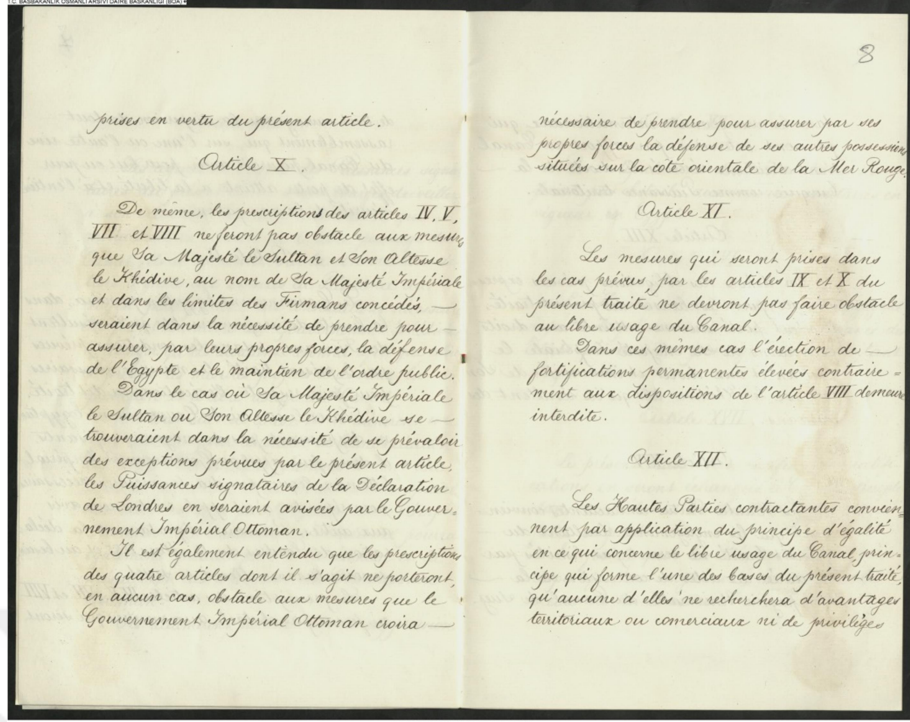 T.C. BAŞBAKANLIK OSMANLI ARŞİVİ DAİRE BAŞKANLIĞI (BOA)
prises en vertu du présent article.
Article X.
De même, les prescriptions des articles IV, V,
VII et VIII ne feront pas obstacle aux mesures
que Sa Majesté le Sultan et Son Altesse
le Khédive, au nom de Sa Majesté Impériale
et dans les limites des Firmans concédés, —
seraient dans la nécessité de prendre pour —
assurer, par leurs propres forces, la défense
de l'Egypte et le maintien de l'ordre public.
Dans le cas où Sa Majesté Impériale
le Sultan ou Son Altesse le Khédive se —
trouveraient dans la nécessité de se prévaloir
des exceptions prévues par le présent article,
les Puissances signataires de la Déclaration
de Londres en seraient avisées par le Gouver=
nement Impérial Ottoman.
Il est également entendu que les prescriptions
des quatre articles dont il s'agit ne porteront,
en aucun cas, obstacle aux mesures que le
Gouvernement Impérial Ottoman croira —
8
nécessaire de prendre pour assurer par ses
propres forces la défense de ses autres possessions
situées sur la côte orientale de la Mer Rouge.
Article XI.
Les mesures qui seront prises dans
les cas prévus, par les articles IX et X du
présent traité ne devront pas faire obstacle
au libre usage du Canal.
Dans ces mêmes cas l'érection de —
fortifications permanentes élevées contraire=
ment aux dispositions de l'article VIII demeure
interdite.
Article XII.
Les Hautes Parties contractantes convien=
nent par application du principe d'égalité
en ce qui concerne le libre usage du Canal prin=
cipe qui forme l'une des bases du présent traité,
qu'aucune d'elles ne recherchera d'avantages
territoriaux ou comerciaux ni de privilèges